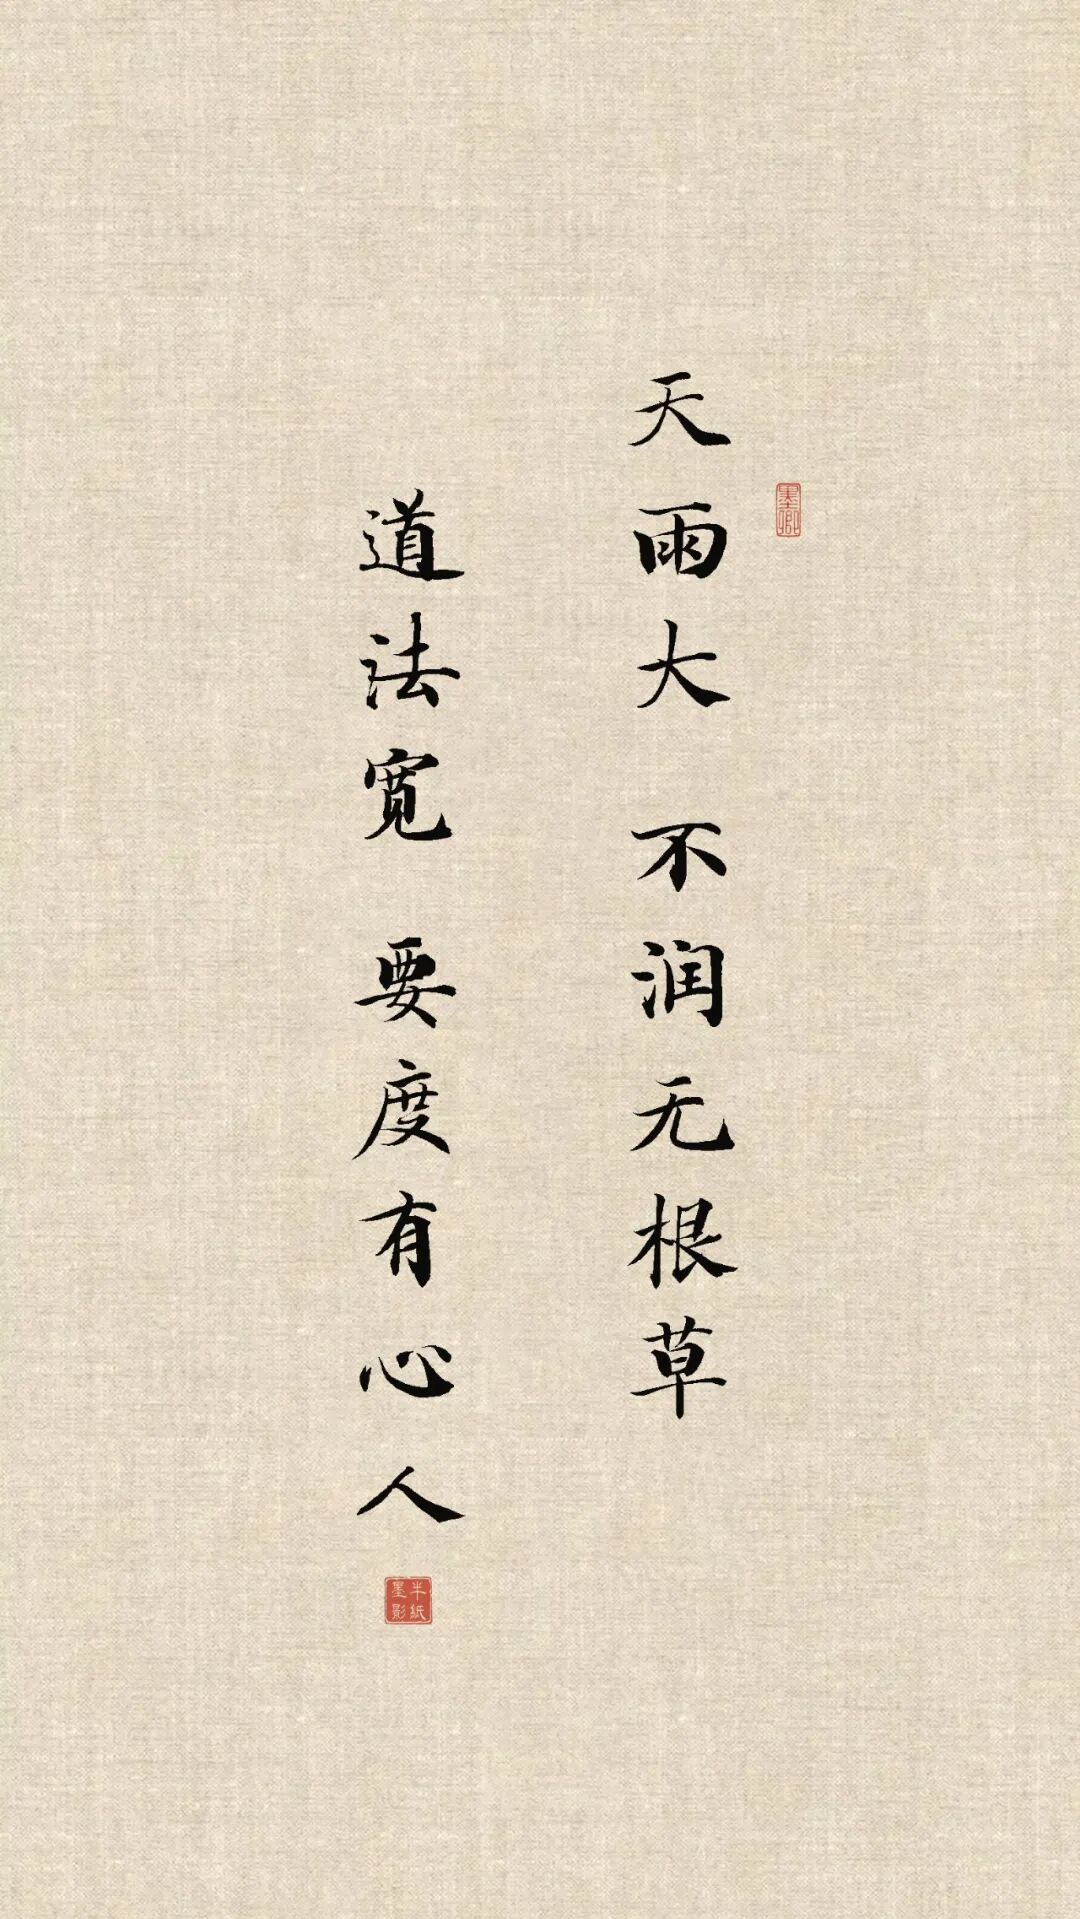 天雨大 不润无根草
道法宽 要度有心人
墨卿
半纸墨影